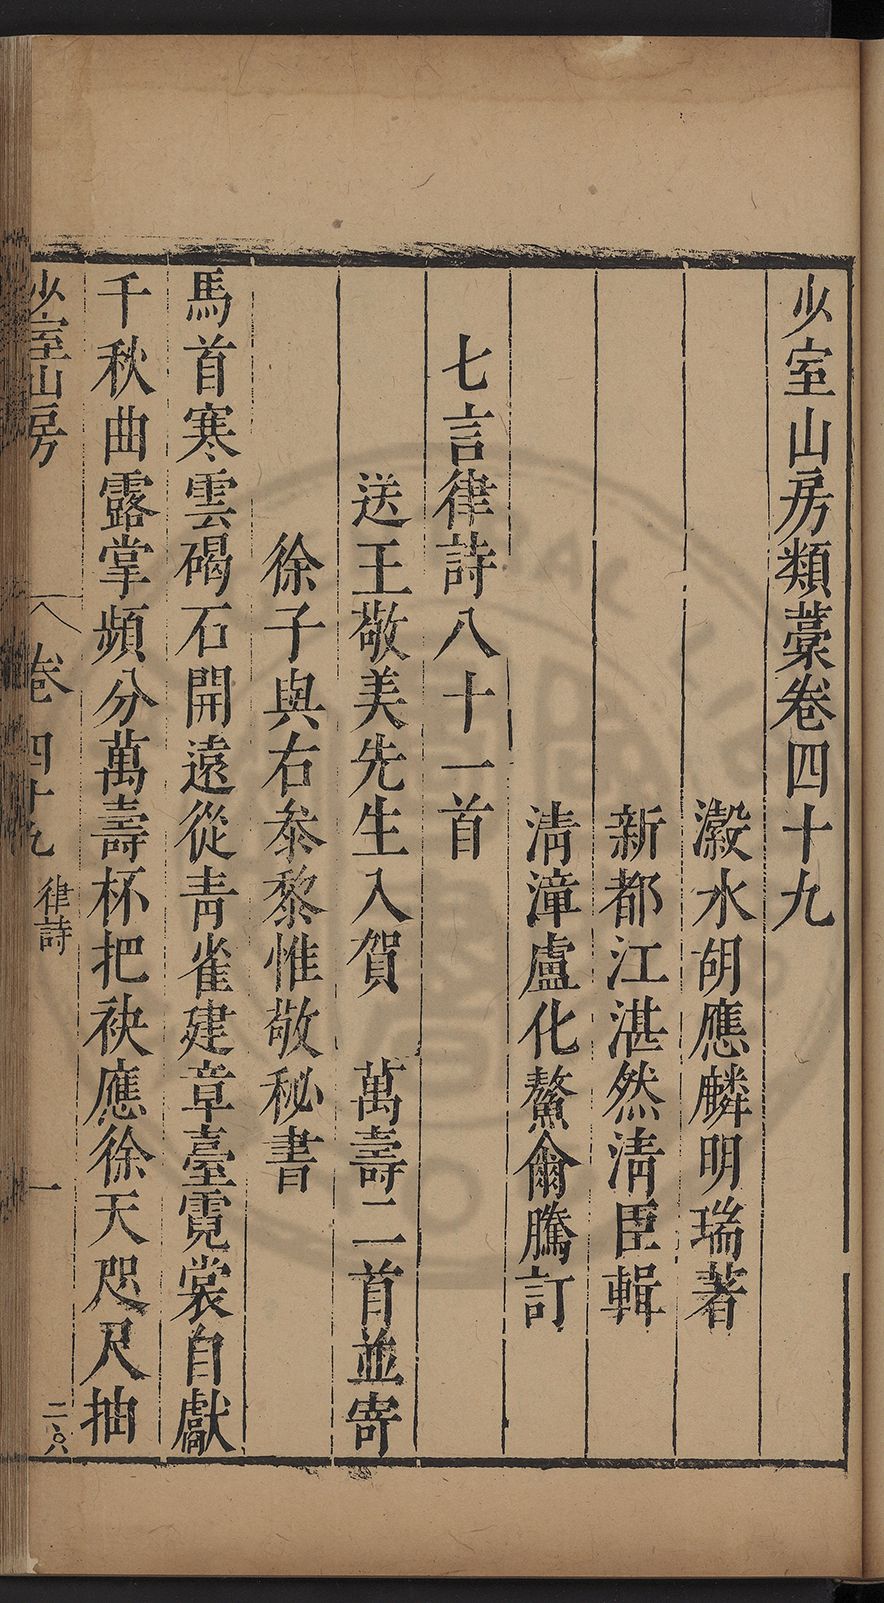 少室山房類藁卷四十九
瀫水胡應麟明瑞著
新都江湛然清臣輯
清漳盧化鰲爾騰訂
七言律詩八十一首
送王敬美先生入賀　萬壽二首並寄
徐子與右叅黎惟敬秘書
馬首寒雲碣石開遠從青雀建章臺霓裳自獻
千秋曲露掌頻分萬壽杯把袂應徐天咫尺抽
少室山房　卷四十九　律詩　一　二六